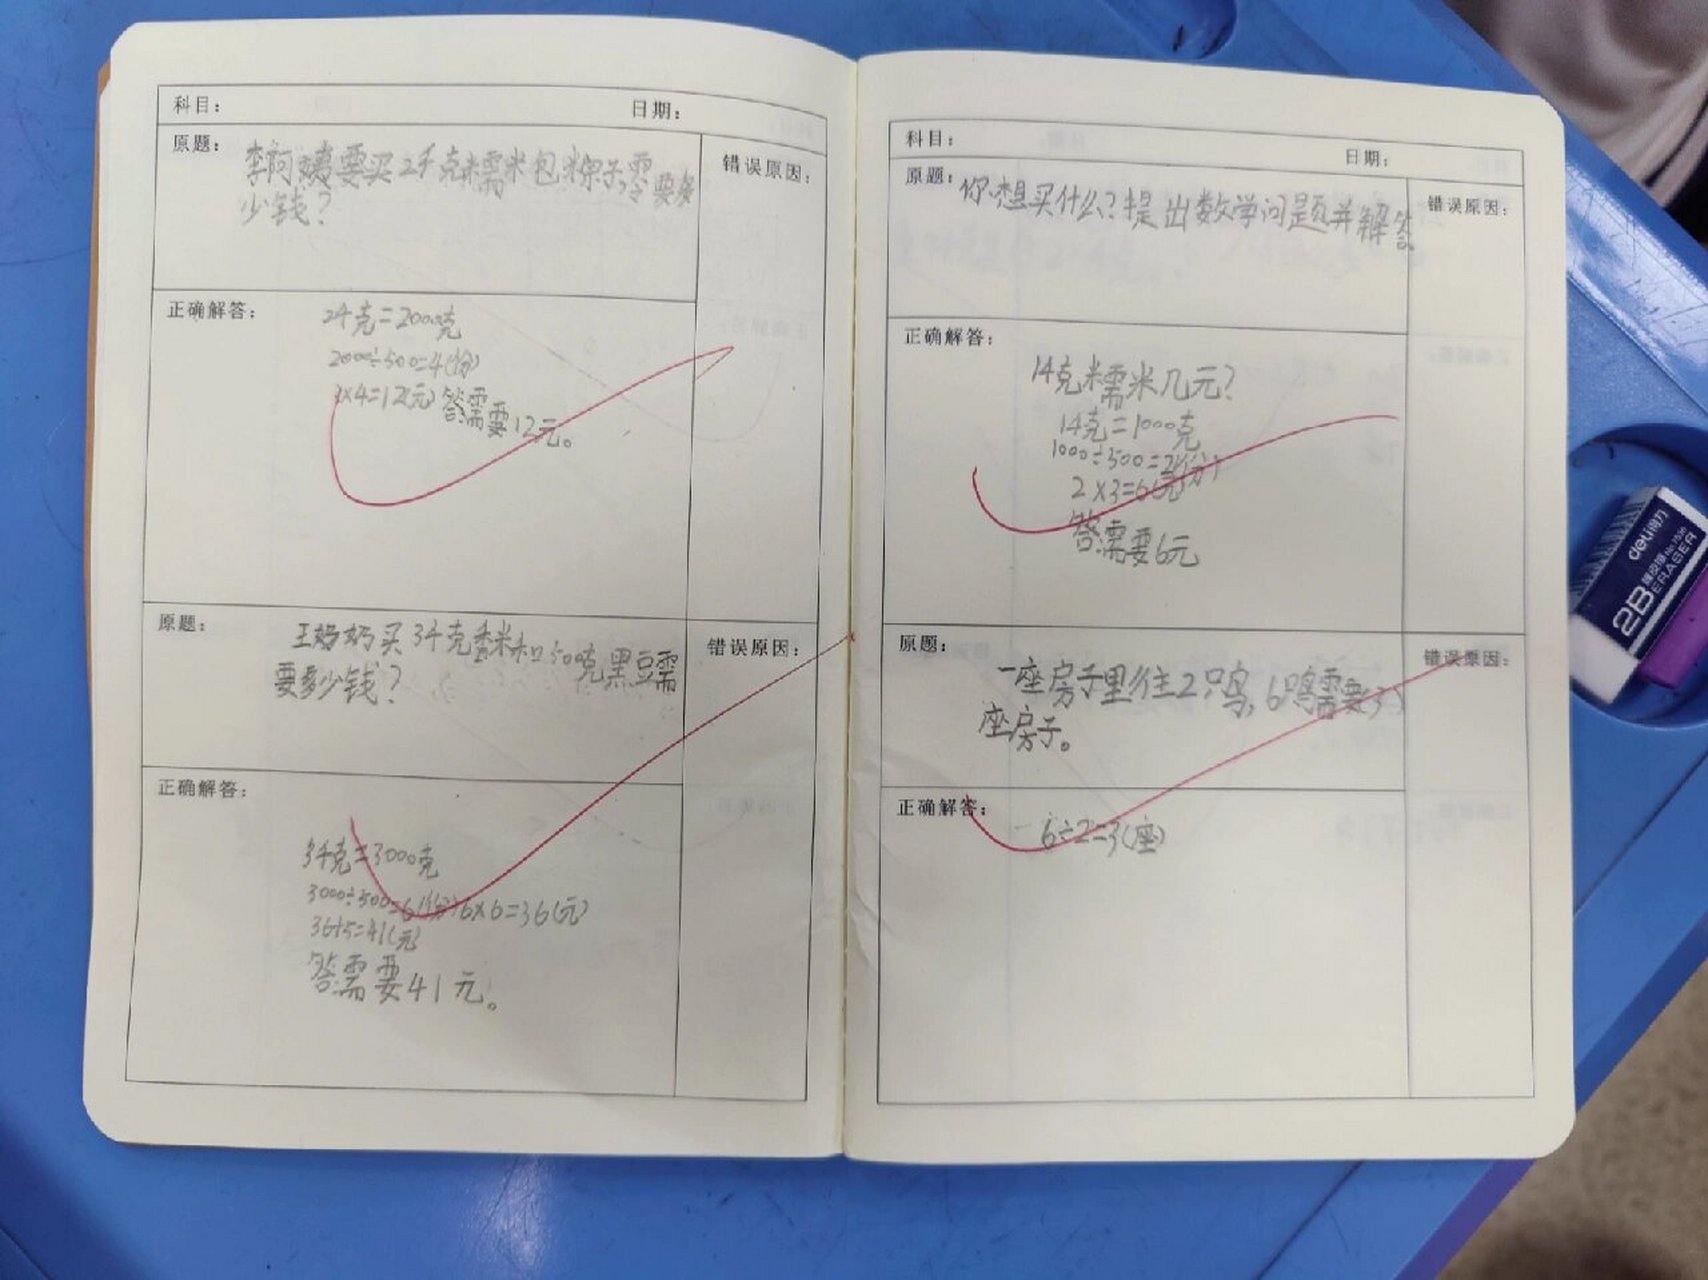 科目:
日期:
原题:
李阿姨要买2千克糯米包粽子,需要多
少钱?
错误原因:
正确解答:
2千克=2000克
2000÷500=4(份)
3×4=12(元) 答需要12元。
原题:
王奶奶买3千克香米和500克黑豆需
要多少钱?
错误原因:
正确解答:
3千克=3000克
3000÷500=6(份)6×6=36(元)
36+5=41(元)
答需要41元。
科目:
日期:
原题:
你想买什么?提出数学问题并解答。
错误原因:
正确解答:
1千克糯米几元?
1千克=1000克
1000÷500=2(份)
2×3=6(元)
答需要6元
原题:
一座房子里住2只鸟,6只鸟需要(3)
座房子。
错误原因:
正确解答:
6÷2=3(座)
deli得力
2B
ERASER